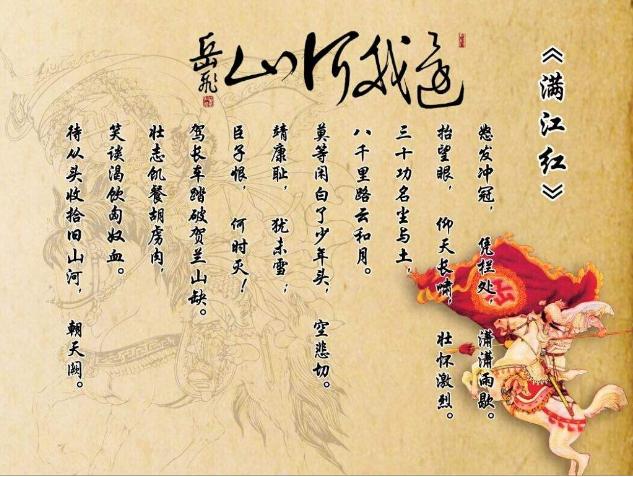 还我河山
岳飞
《满江红》
怒发冲冠， 凭栏处， 潇潇雨歇。
抬望眼， 仰天长啸， 壮怀激烈。
三十功名尘与土，
八千里路云和月。
莫等闲白了少年头， 空悲切。
靖康耻， 犹未雪；
臣子恨， 何时灭！
驾长车踏破贺兰山缺。
壮志饥餐胡虏肉，
笑谈渴饮匈奴血。
待从头收拾旧山河， 朝天阙。